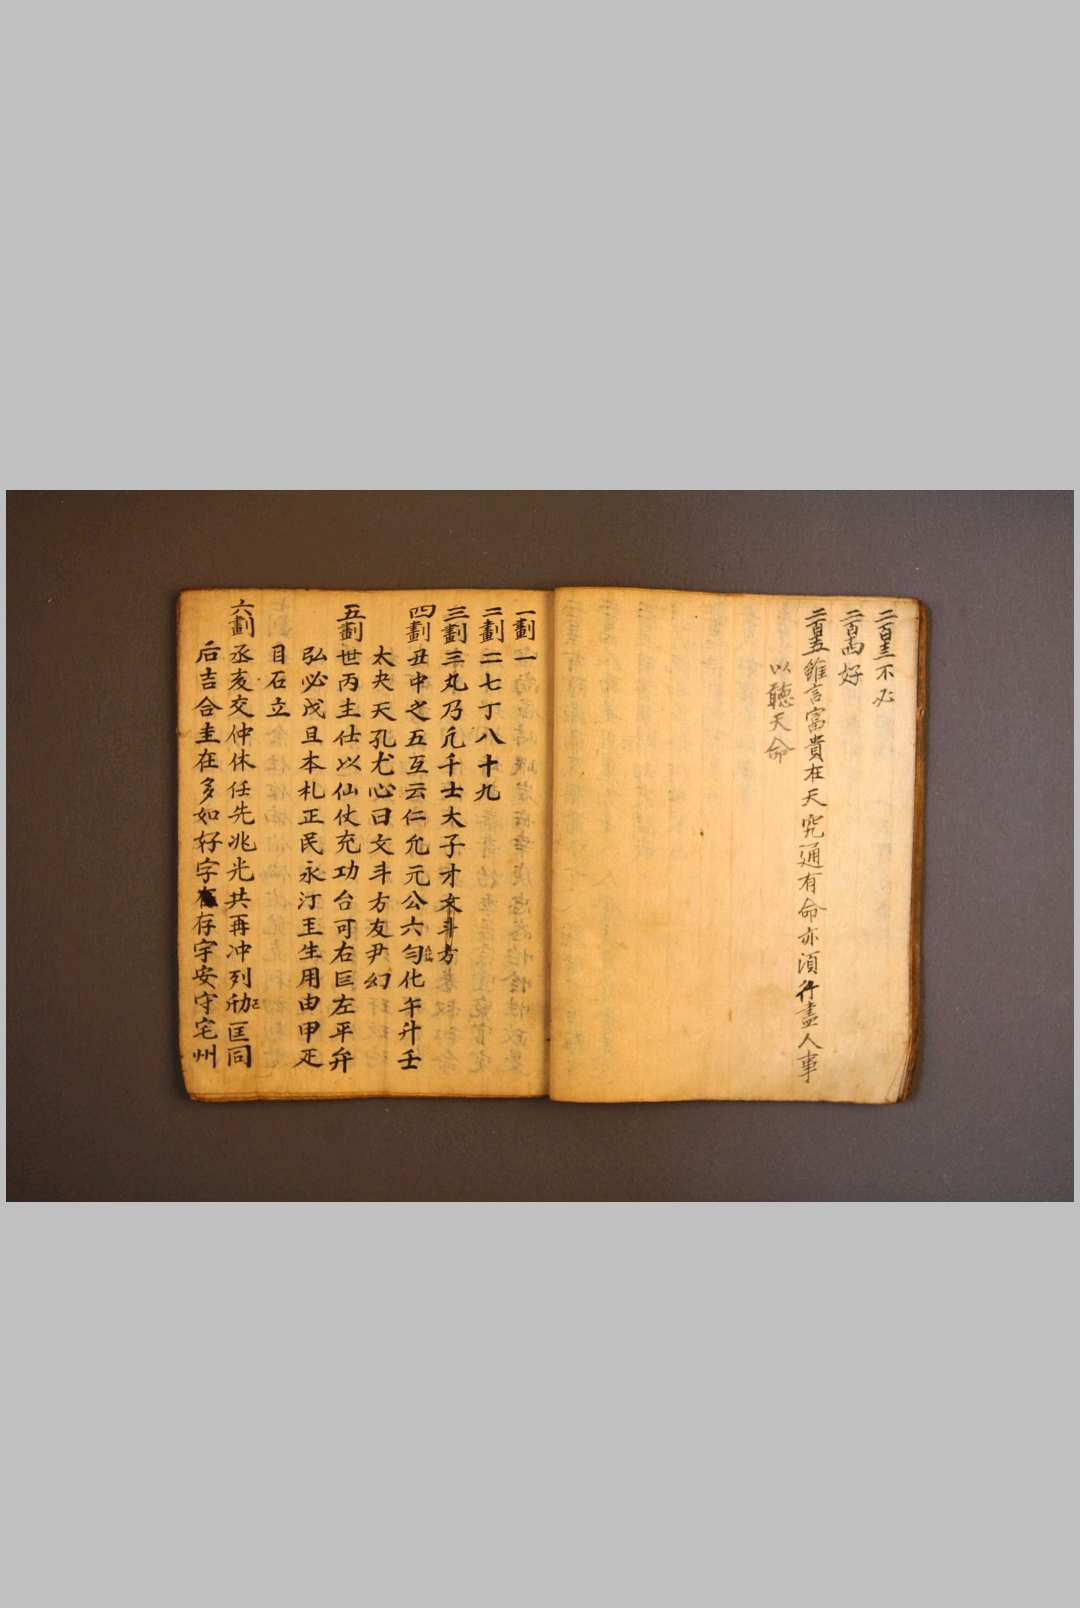 二百圭不必
二百両好
二百五雖言富貴在天究通有命亦須行盡人事
以聴天命
一劃一
二劃二七丁八十九
三劃三丸乃凡千士大子才文斗方
四劃丑中之五互云仁允元公六勻化午升壬
太夫天孔尤心日文斗方友尹幻
五劃世丙主仕以仙仗充功台可右巨左平弁
弘必戊且本札正民永汀玉生用由甲疋
目石立
六劃丞亥交仲休任先兆光共再冲列劦匡同
后吉合圭在多如好字存宇安守宅州